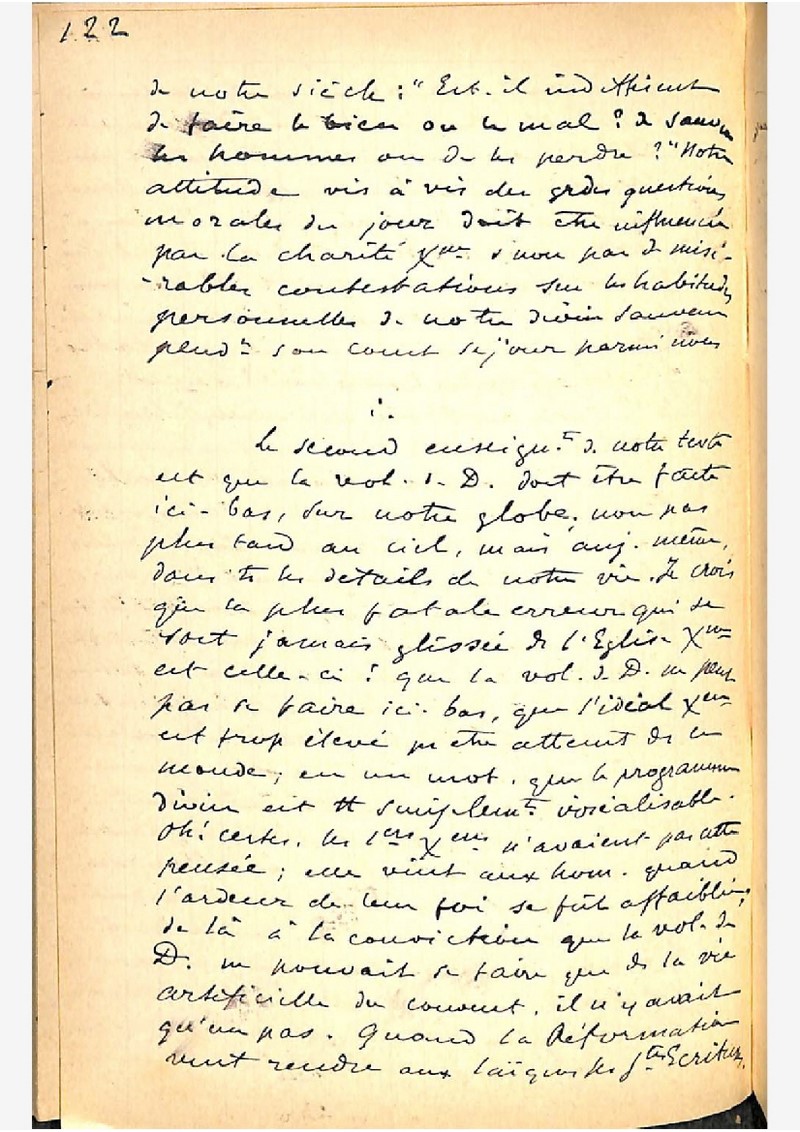 122
de notre siècle : "Est-il indifférent
de faire le bien ou le mal ? de sauver
les hommes ou de les perdre ?" Notre
attitude vis à vis des grdes questions
morales du jour doit être influencée
par la charité Xne & non par de misé-
-rables contestations sur les habitudes
personnelles de notre divin Sauveur
pendt son court séjour parmi nous
Le second enseignt de notre texte
est que la vol. d. D. doit être faite
ici-bas, sur notre globe, non pas
plus tard au ciel, mais auj. même,
dans ts les détails de notre vie. Je crois
que la plus fatale erreur qui se
soit jamais glissée ds l'Eglise Xne
est celle-ci : que la vol. de D. ne peut
pas se faire ici-bas, que l'idéal Xen
est trop élevé pr être atteint ds ce
monde ; en un mot, que le programme
divin est tt simplemt irréalisable.
Oh! certes, les 1ers Xens n'avaient pas cette
pensée ; elle vint aux hom. quand
l'ardeur de leur foi se fût affaiblie ;
de là à la conviction que la vol. de
D. ne pouvait se faire que ds la vie
artificielle du couvent, il n'y avait
qu'un pas. Quand la Réformation
vint rendre aux laïques les Stes Ecritures,